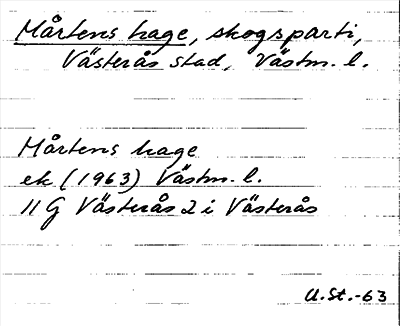 Mårtens hage, skogsparti,
Västerås stad, Västm. l.
Mårtens hage
ek (1963) Västm. l.
11 G Västerås 2 i Västerås
U.St.-63